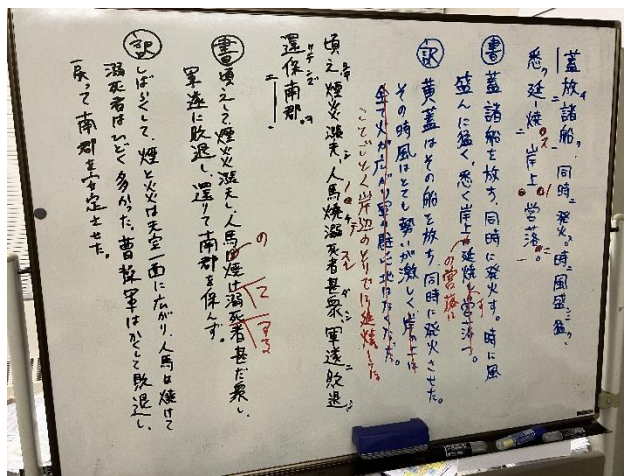 蓋放諸船、同時発火。時風盛猛、
悉延焼岸上営落。
書 蓋諸船を放ち、同時に発火す。時に風
盛んに猛く、悉く岸上延焼し営落つ。
の営落に
訳 黄蓋はその船を放ち、同時に発火させた。
その時風はとても勢いが激しく
ことごとく岸辺のとりでに延焼した。
頃之、煙炎漲天、人馬焼溺死者甚衆。軍遂敗退、
還保南郡。
書 頃えて煙火漲天し、人馬焼け溺死者甚だ衆し。
軍遂に敗退し、還りて南郡を保んず。
訳 しばらくして、煙と火は天空一面に広がり、人馬は焼けて
溺死者はひどく多かった。曹操軍はかくして敗退し、
戻って南郡を安定させた。